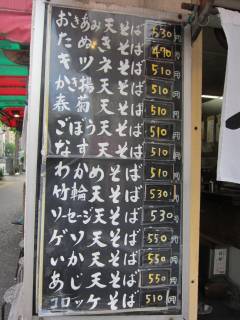 おきあみ天そば 530円
たぬきそば 470円
キツネそば 510円
かき揚天そば 510円
春菊天そば 510円
ごぼう天そば 510円
なす天そば 510円
わかめそば 510円
竹輪天そば 530円
ソーセージ天そば 530円
ゲソ天そば 550円
いか天そば 550円
あじ天そば 550円
コロッケそば 510円